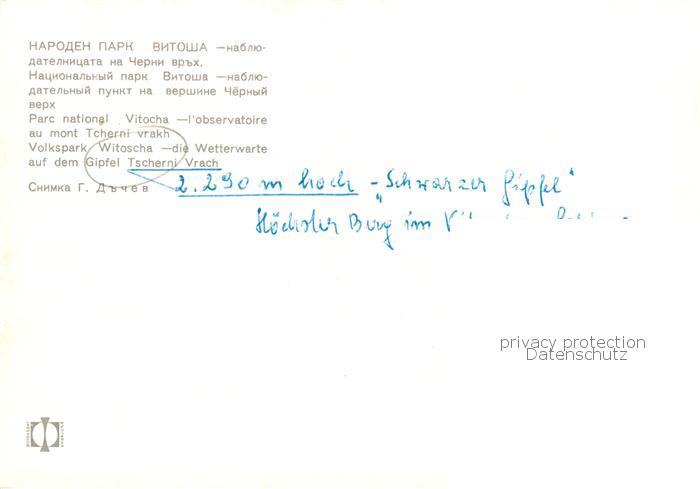 НАРОДЕН ПАРК ВИТОША —наблю-
дателницата на Черни връх.
Национальный парк Витоша —наблю-
дательный пункт на вершине Чёрный
верх
Parc national Vitocha —l'observatoire
au mont Tcherni vrakh
Volkspark Witoscha —die Wetterwarte
auf dem Gipfel Tscherni Vrach
Снимка Г. Дъчев
2.290 m hoch - „Schwarzer Gipfel"
Höchster Berg im
privacy protection
Datenschutz